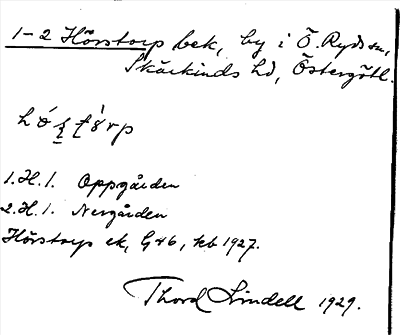 1-2 Hörstorp bek, by i Ö. Ryds sn,
Skärkinds hd, Östergötl.
1. H. 1. Oppgården
2. H. 1. Nergården
Hörstorp ek, G46, kb 1927.
Thord Lindell 1929.